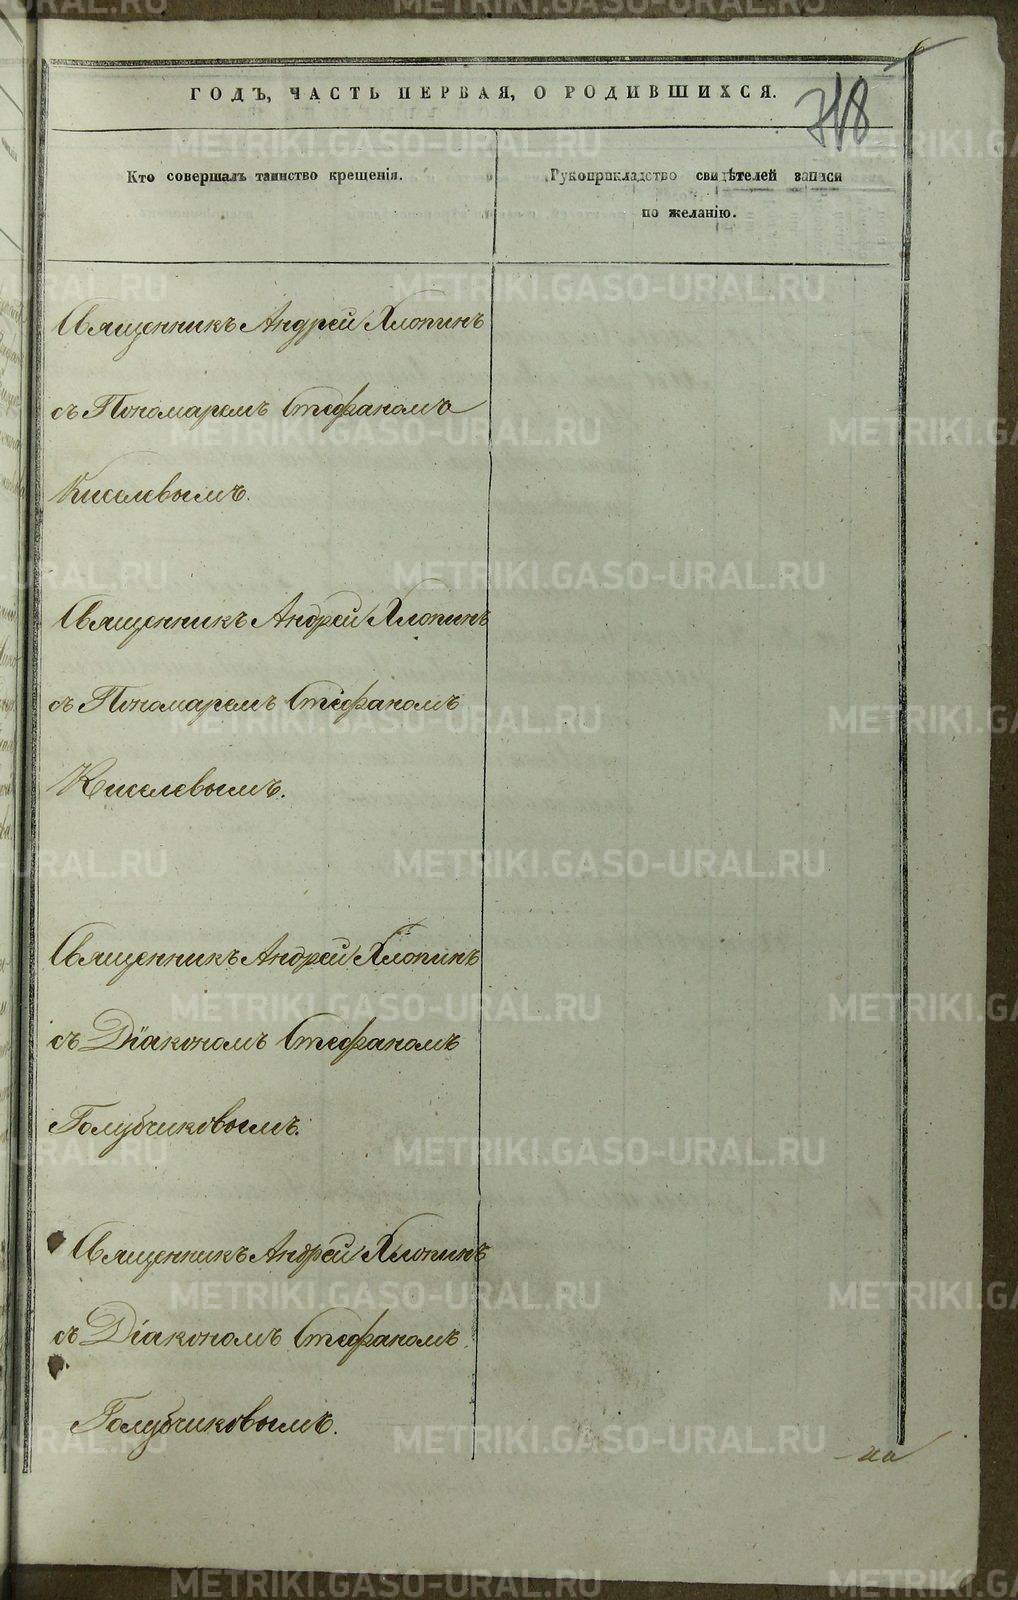 6
ГОДЪ, ЧАСТЬ ПЕРВАЯ, О РОДИВШИХСЯ.
718
Кто совершалъ таинство крещенія.
Рукоприкладство свидѣтелей записи
по желанію.
Священникъ Андрей Хлопинъ
съ Пономаремъ Стефаномъ
Киселевымъ.
Священникъ Андрей Хлопинъ
съ Пономаремъ Стефаномъ
Киселевымъ.
Священникъ Андрей Хлопинъ
съ Діакономъ Стефаномъ
Голубчиковымъ.
Священникъ Андрей Хлопинъ
съ Діакономъ Стефаномъ
Голубчиковымъ.
METRIKI.GASO-URAL.RU